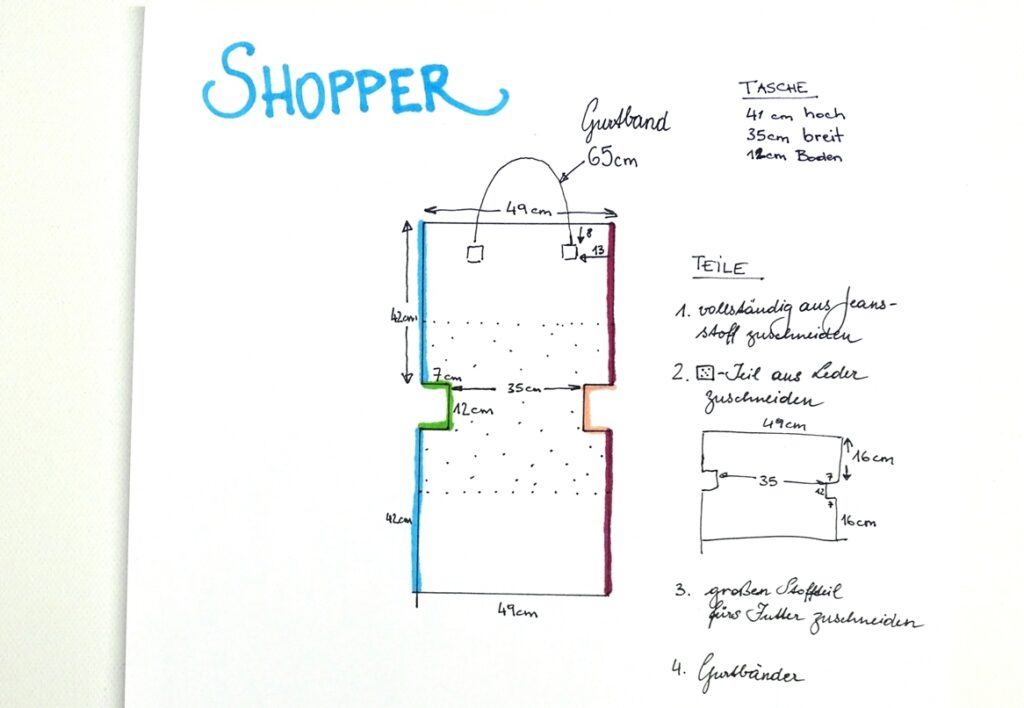 SHOPPER
TASCHE
41 cm hoch
35cm breit
12cm Boden
Gurtband
65cm
49cm
8
13
42cm
7cm
35cm
12cm
42cm
49cm
TEILE
1. vollständig aus Jeans-
stoff zuschneiden
2. -Teil aus Leder
zuschneiden
49cm
16cm
35
7
12
7
16cm
3. großen Stoffteil
fürs Futter zuschneiden
4. Gurtbänder